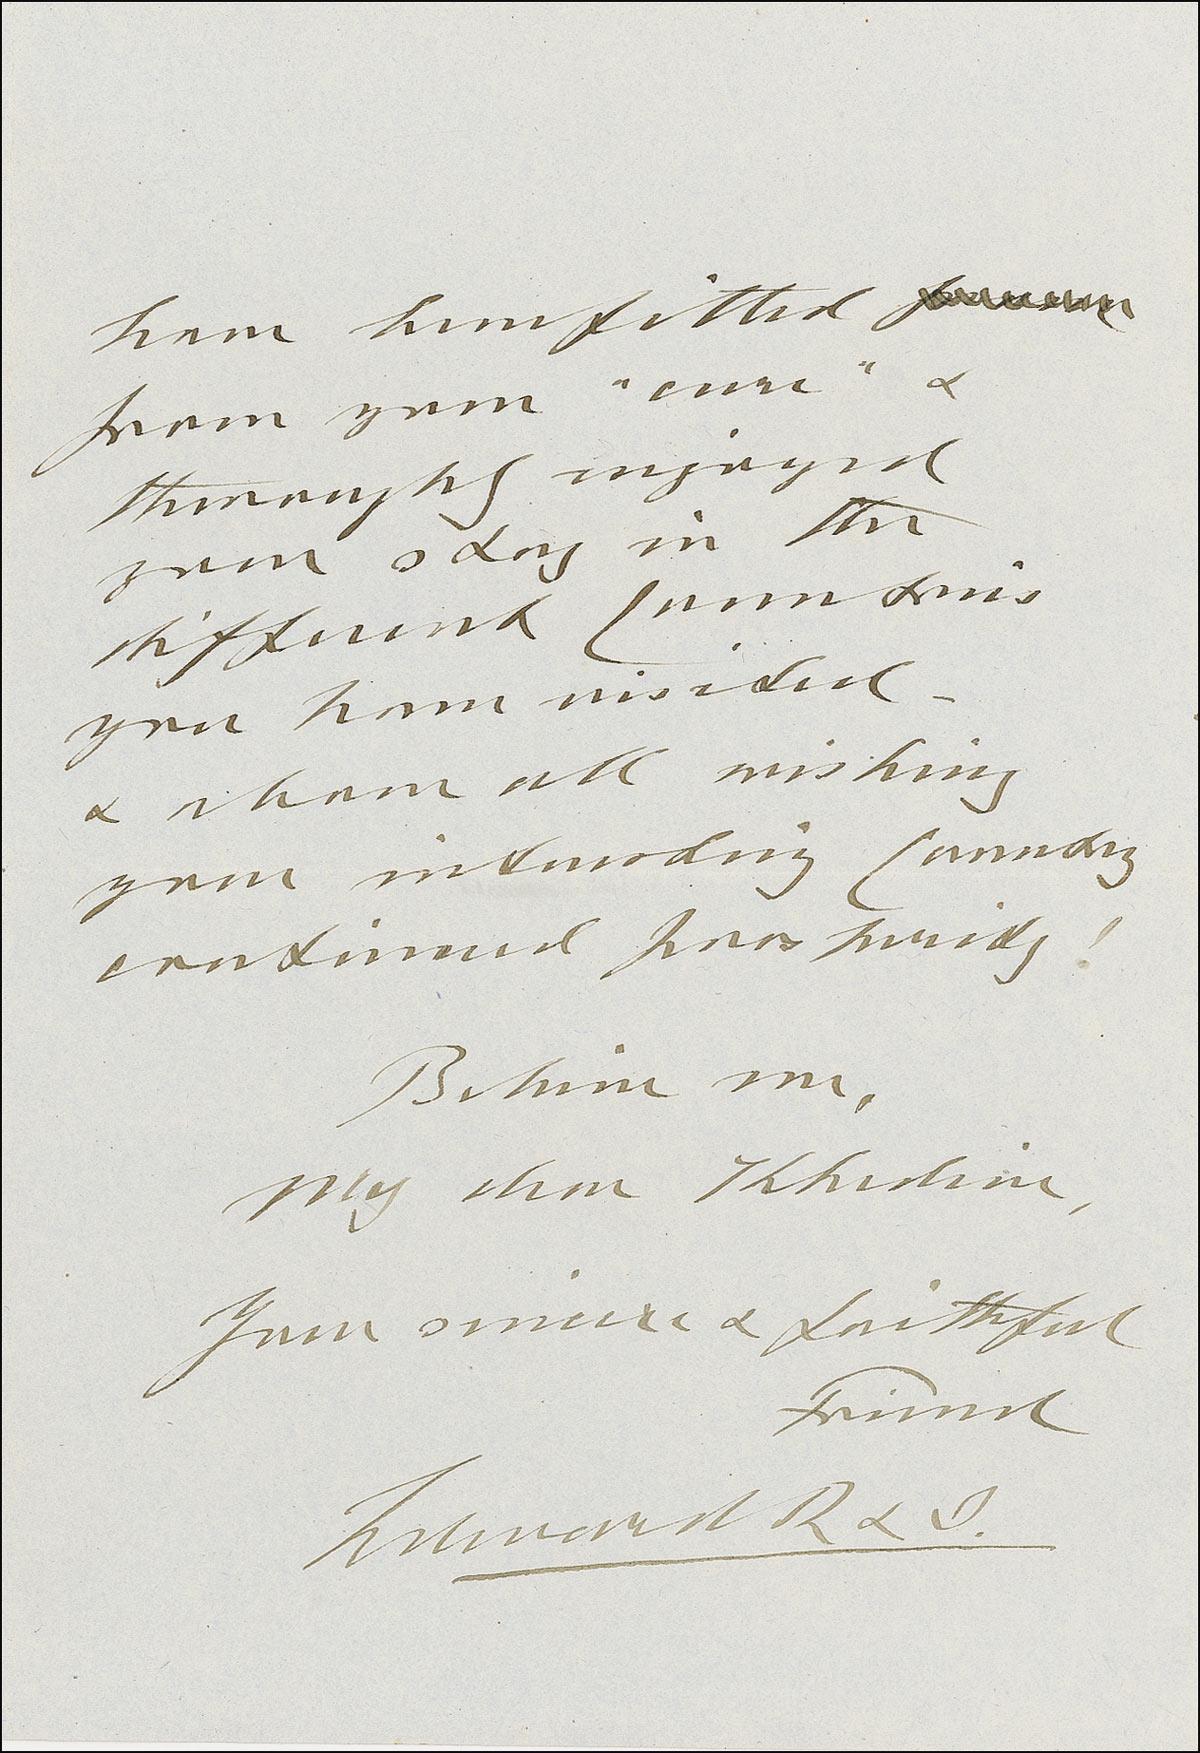 have benefitted
from your "cure" &
thoroughly enjoyed
your stay in the
different Countries
you have visited –
& above all wishing
your interesting Country
continued prosperity!
Believe me,
My dear Khedive,
Your sincere & faithful
Friend
Edward R & I.